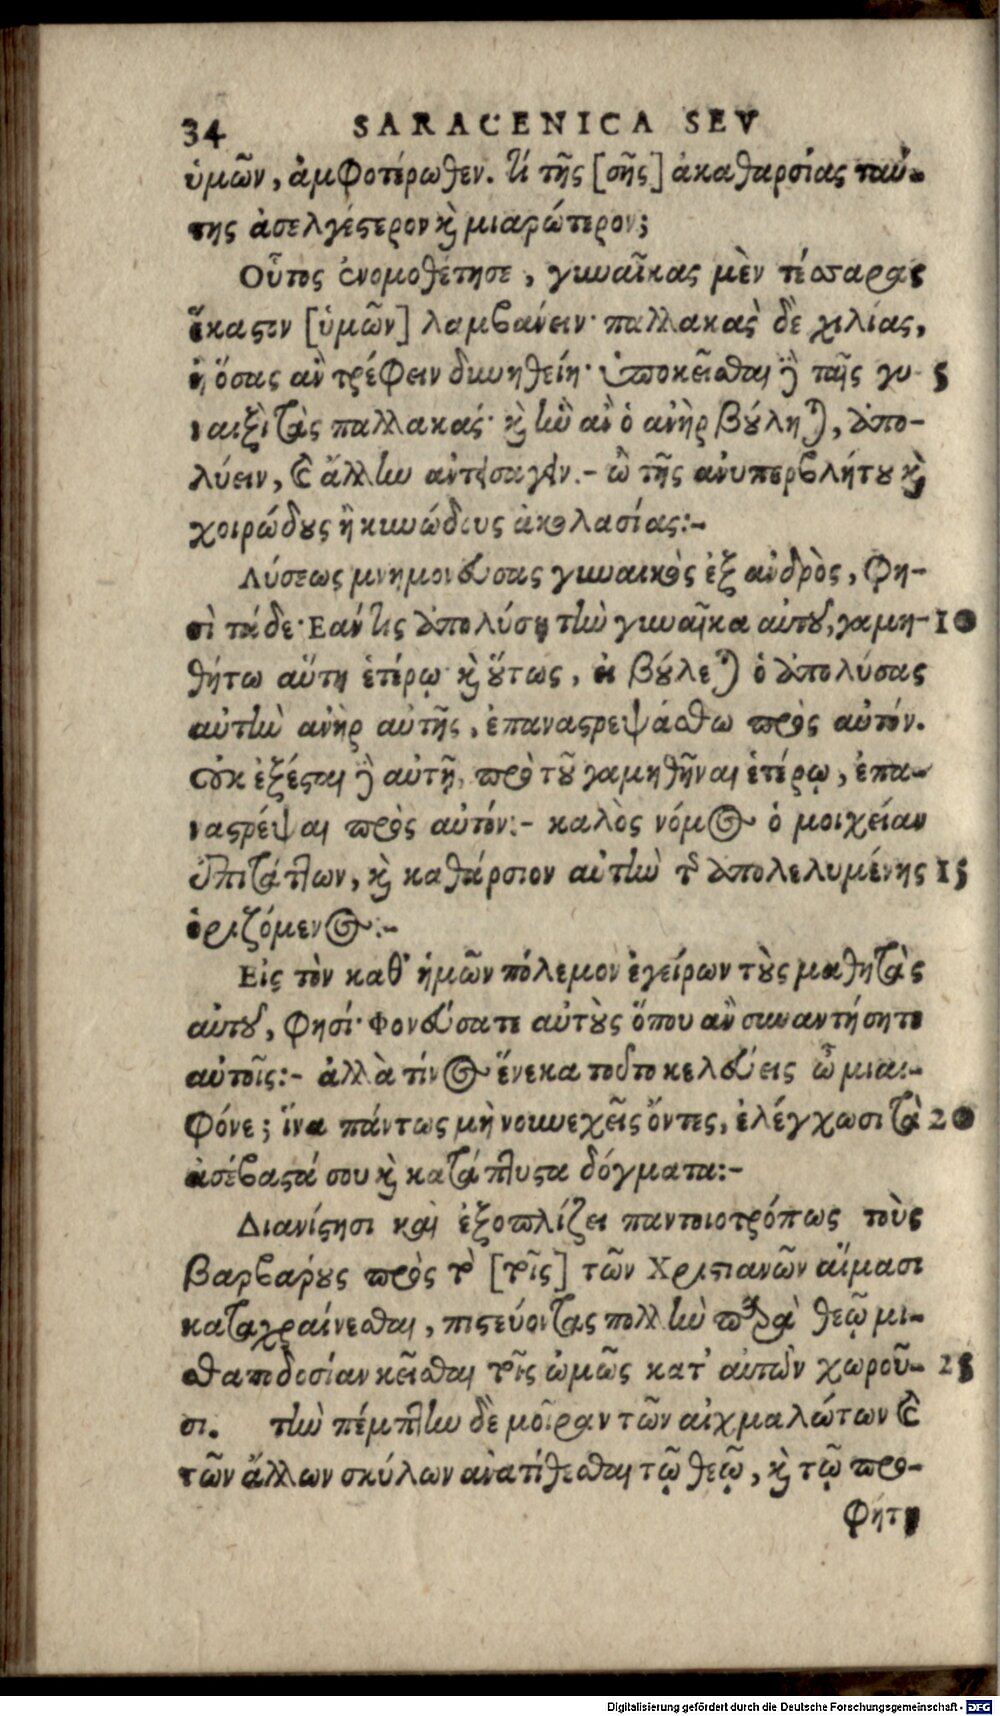 34 SARACENICA SEV
ὑμῶν, ἀμφοτέρωθεν. τί τῆς [σῆς] ἀκαθαρσίας ταύ-
της ἀσελγέστερον καὶ μιαρώτερον;
Οὗτος ἐνομοθέτησε, γυναῖκας μὲν τέσσαρας
ἕκαστον [ὑμῶν] λαμβάνειν· παλλακὰς δὲ χιλίας,
ἢ ὅσας ἂν τρέφειν δυνηθείη· ὑποκεῖσθαι δὲ ταῖς γυ- 5
ναιξὶ τὰς παλλακάς· καὶ ἣν ἂν ὁ ἀνὴρ βούληται, ἀπο-
λύειν, καὶ ἄλλην ἀντεισαγεῖν.- ὢ τῆς ἀνυπερβλήτου καὶ
χοιρώδους ἢ κυνώδους ἀκολασίας:-
Λύσεως μνημονεύσας γυναικὸς ἐξ ἀνδρὸς, φη-
σὶ τάδε· Εάν τις ἀπολύσῃ τὴν γυναῖκα αὐτοῦ, γαμη- 10
θήτω αὕτη ἑτέρῳ· καὶ οὕτως, εἰ βούλεται ὁ ἀπολύσας
αὐτὴν ἀνὴρ αὐτῆς, ἐπαναστρεψάσθω πρὸς αὐτόν.
οὐκ ἐξέσται δὲ αὐτῇ, πρὸ τοῦ γαμηθῆναι ἑτέρῳ, ἐπα-
ναστρέψαι πρὸς αὐτόν:- καλὸς νόμος ὁ μοιχείαν
ἐπιτάττων, καὶ καθάρσιον αὐτὴν τῆς ἀπολελυμένης 15
ὁριζόμενος:-
Εἰς τὸν καθ' ἡμῶν πόλεμον ἐγείρων τοὺς μαθητὰς
αὐτοῦ, φησί· Φονεύσατε αὐτοὺς ὅπου ἂν συναντήσητε
αὐτοῖς:- ἀλλὰ τίνος ἕνεκα τοῦτο κελεύεις ὦ μιαι-
φόνε; ἵνα πάντως μὴ νουνεχεῖς ὄντες, ἐλέγχωσι τὰ 20
ἀσέβαστά σου καὶ κατάπτυστα δόγματα:-
Διανίστησι καὶ ἐξοπλίζει παντοιοτρόπως τοὺς
βαρβάρους πρὸς τὸ [τοῖς] τῶν Χριστιανῶν αἵμασι
καταχραίνεσθαι, πιστεύοντας πολλὴν παρὰ θεῷ μι-
σθαποδοσίαν κεῖσθαι τοῖς ὠμῶς κατ' αὐτῶν χωροῦ- 25
σι. τὴν πέμπτην δὲ μοῖραν τῶν αἰχμαλώτων καὶ
τῶν ἄλλων σκύλων ἀνατίθεσθαι τῷ θεῷ, καὶ τῷ προ-
φήτῃ
Digitalisierung gefördert durch die Deutsche Forschungsgemeinschaft - DFG